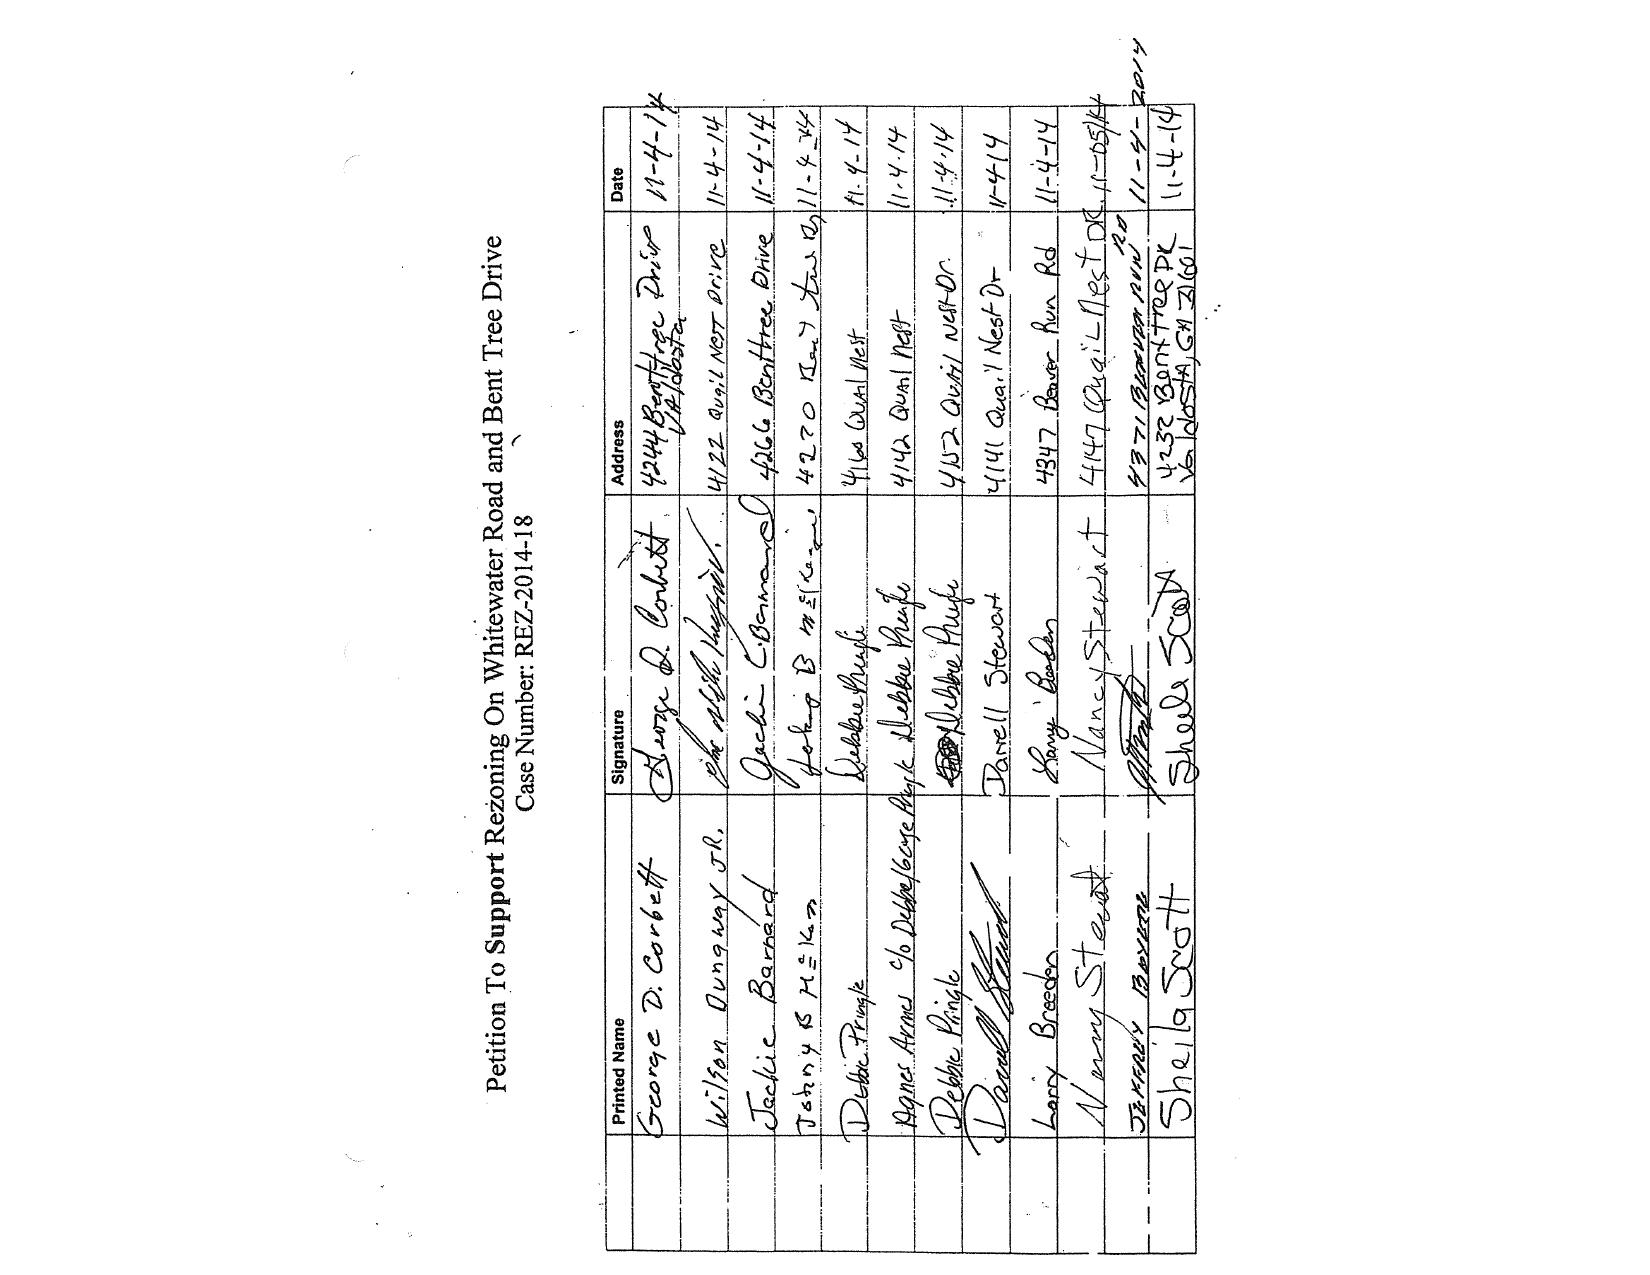 Petition To Support Rezoning On Whitewater Road and Bent Tree Drive
Case Number: REZ-2014-18
Printed Name Signature Address Date
George D. Corbett George D. Corbett 4244 Benttree Drive Valdosta 11-4-14
Wilson Dunaway JR. 4122 Quail Nest Drive 11-4-14
Jackie Barnard Jackie C. Barnard 4266 Benttree Drive 11-4-14
Johnny B 4270 Bent tree Dr 11-4-14
Debbie Pringle Debbie Pringle 4160 Quail Nest 11-4-14
Agnes Armes c/o Debbie/George Pringle Debbie Pringle 4142 Quail Nest 11-4-14
Debbie Pringle Debbie Pringle 4152 Quail Nest Dr. 11-4-14
Darrell Stewart Darrell Stewart 4141 Quail Nest Dr 11-4-14
Larry Breeden Larry Breeden 4347 Beaver Run Rd 11-4-14
Nancy Stewart Nancy Stewart 4147 Quail Nest DR. 11-05/14
JEFFREY 4371 BEAVER RUN RD 11-4-2014
Sheila Scott Sheila Scott 4232 Bent Tree DR 11-4-14
Valdosta, GA 31601